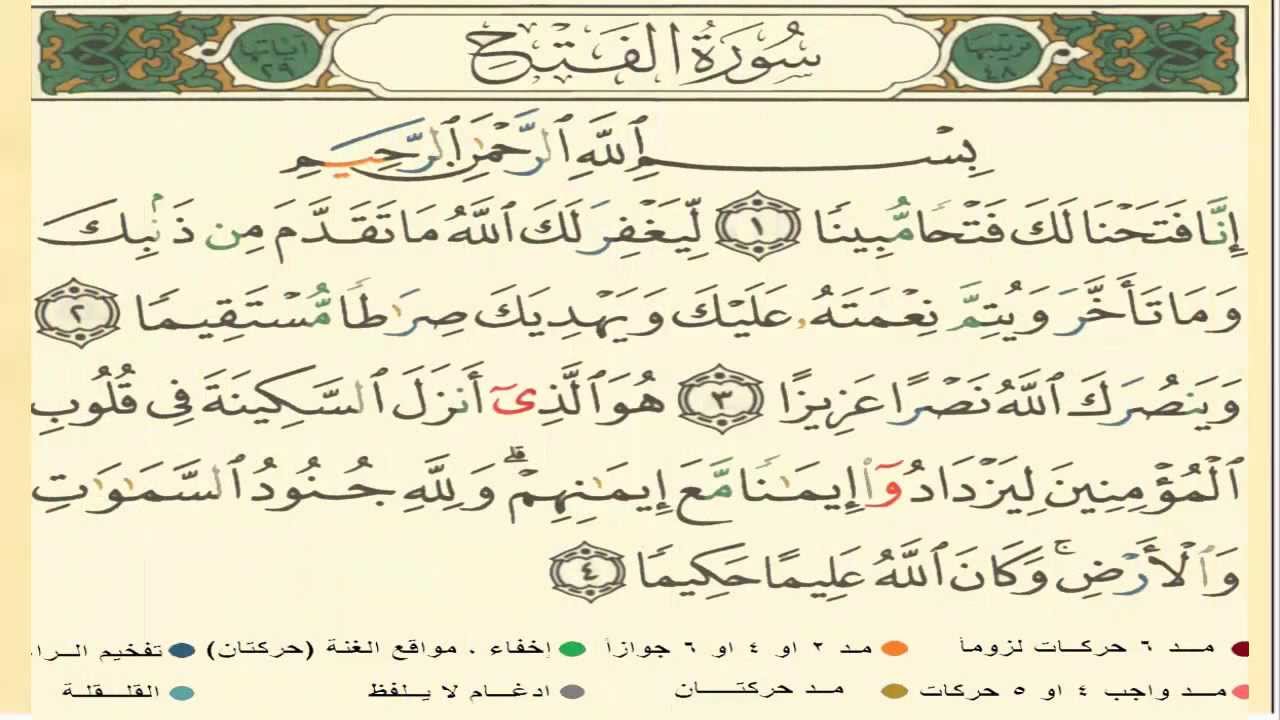 سُورَةُ الفَتْحِ
ترتيبها ٤٨
آياتها ٢٩
بِسْمِ ٱللَّهِ ٱلرَّحْمَٰنِ ٱلرَّحِيمِ
إِنَّا فَتَحْنَا لَكَ فَتْحًا مُّبِينًا ١ لِّيَغْفِرَ لَكَ ٱللَّهُ مَا تَقَدَّمَ مِن ذَنۢبِكَ
وَمَا تَأَخَّرَ وَيُتِمَّ نِعْمَتَهُۥ عَلَيْكَ وَيَهْدِيَكَ صِرَٰطًا مُّسْتَقِيمًا ٢
وَيَنصُرَكَ ٱللَّهُ نَصْرًا عَزِيزًا ٣ هُوَ ٱلَّذِىٓ أَنزَلَ ٱلسَّكِينَةَ فِى قُلُوبِ
ٱلْمُؤْمِنِينَ لِيَزْدَادُوٓا۟ إِيمَٰنًا مَّعَ إِيمَٰنِهِمْ ۗ وَلِلَّهِ جُنُودُ ٱلسَّمَٰوَٰتِ
وَٱلْأَرْضِ ۚ وَكَانَ ٱللَّهُ عَلِيمًا حَكِيمًا ٤
مد ٦ حركات لزوماً مد ٢ او ٤ او ٦ جوازاً إخفاء ، مواقع الغنة (حركتان) تفخيم الرا
مد واجب ٤ او ٥ حركات مد حركتان ادغام لا يلفظ القلقلة